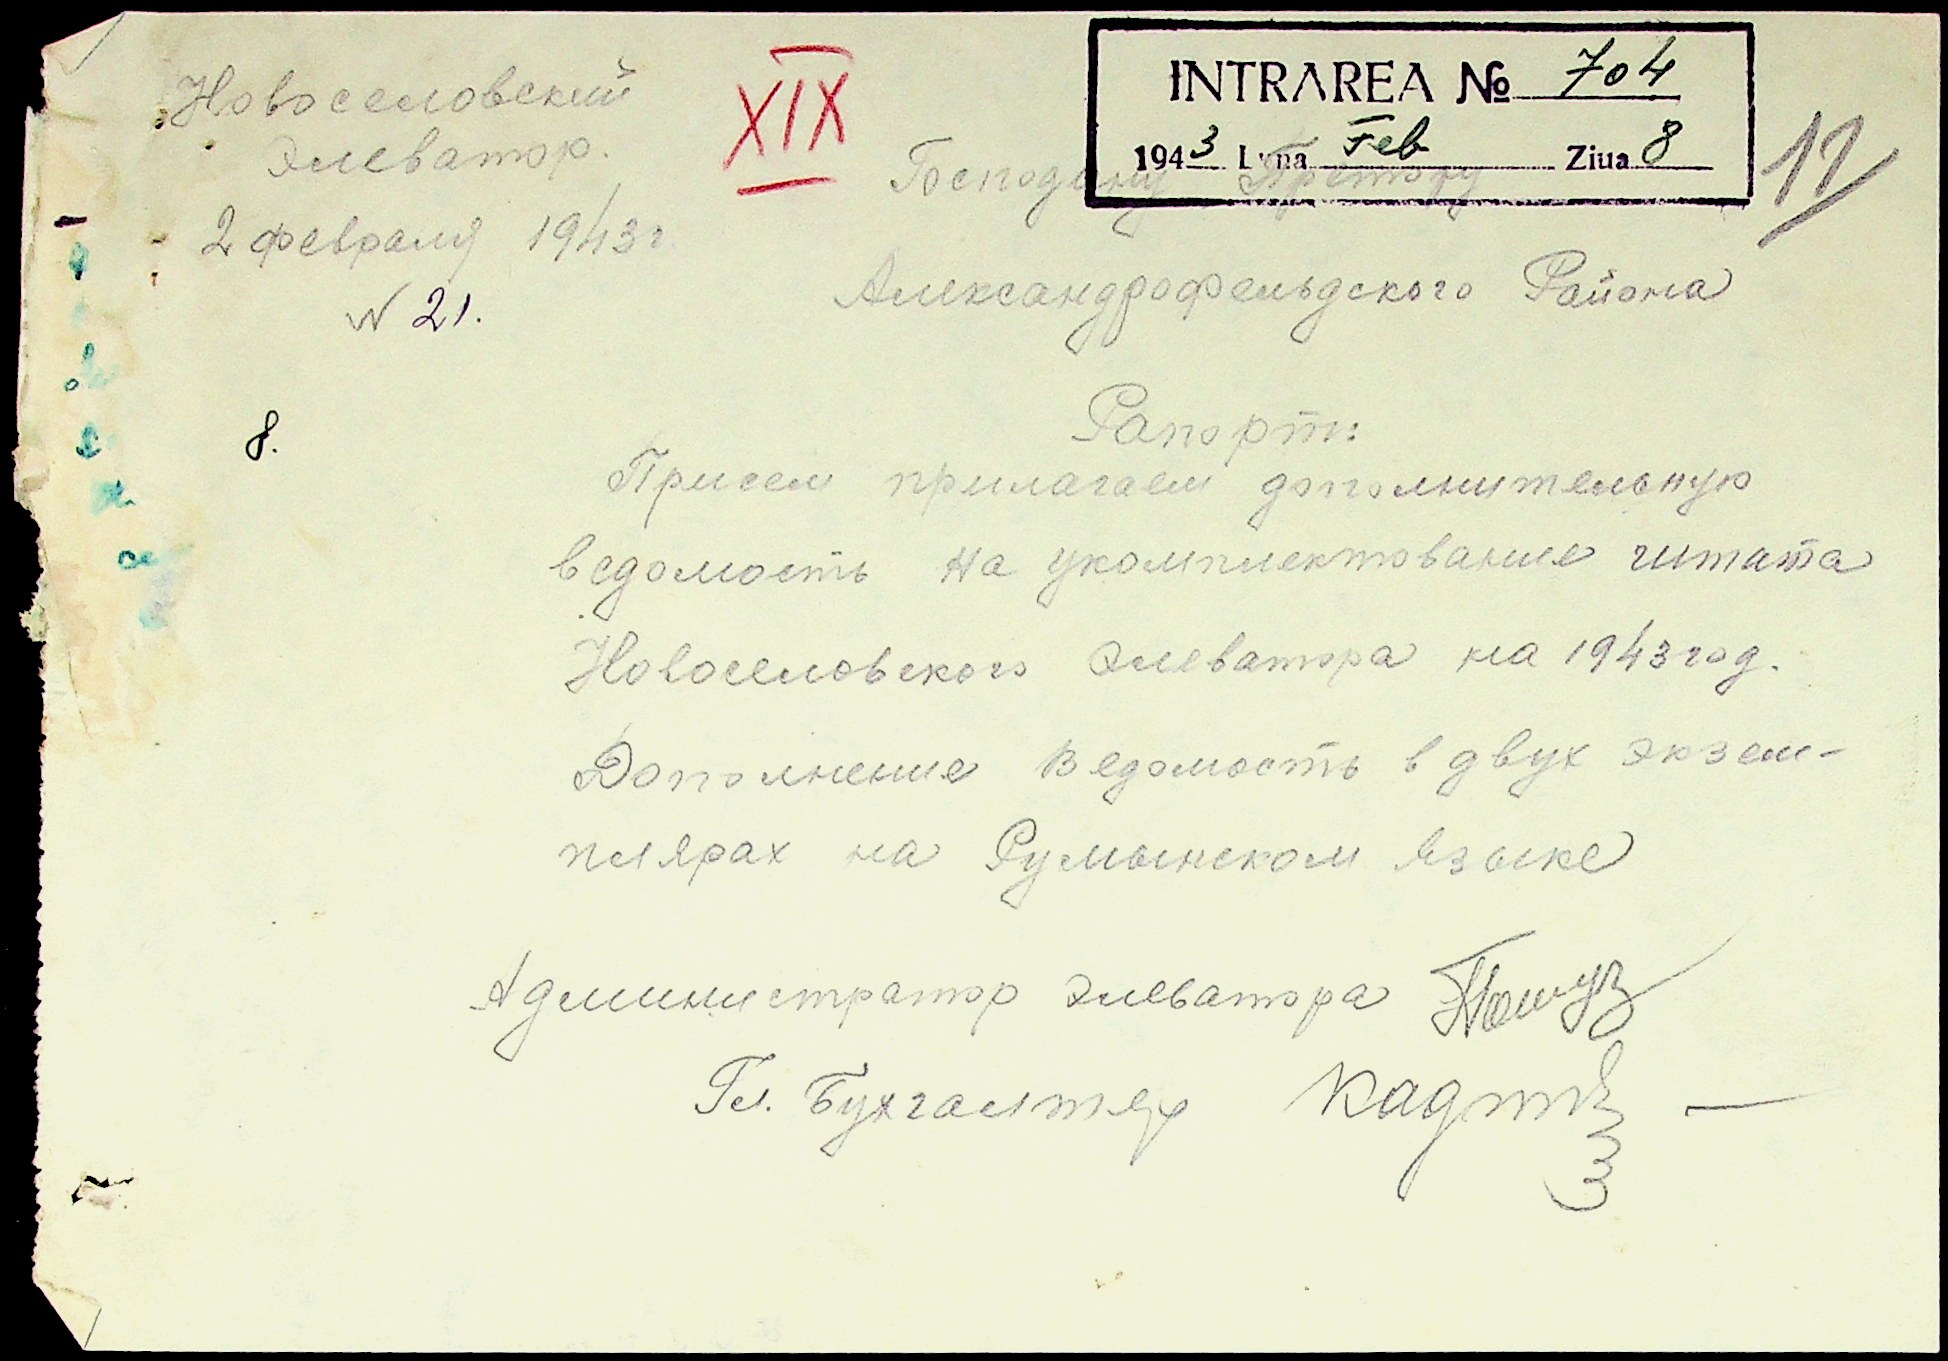 Новоселовский
Элеватор.
2 февраля 1943 г
N 21.
XIX
INTRAREA № 704
1943 Luna Feb Ziua 8
Господину Претору
Александрофельдского Района
8.
Рапорт:
Присем прилагаем дополнительную
ведомость на укомплектование штата
Новоселовского элеватора на 1943 год.
Дополнение Ведомость в двух экзем-
плярах на Румынском языке
Администратор элеватора
Гл. Бухгалтер